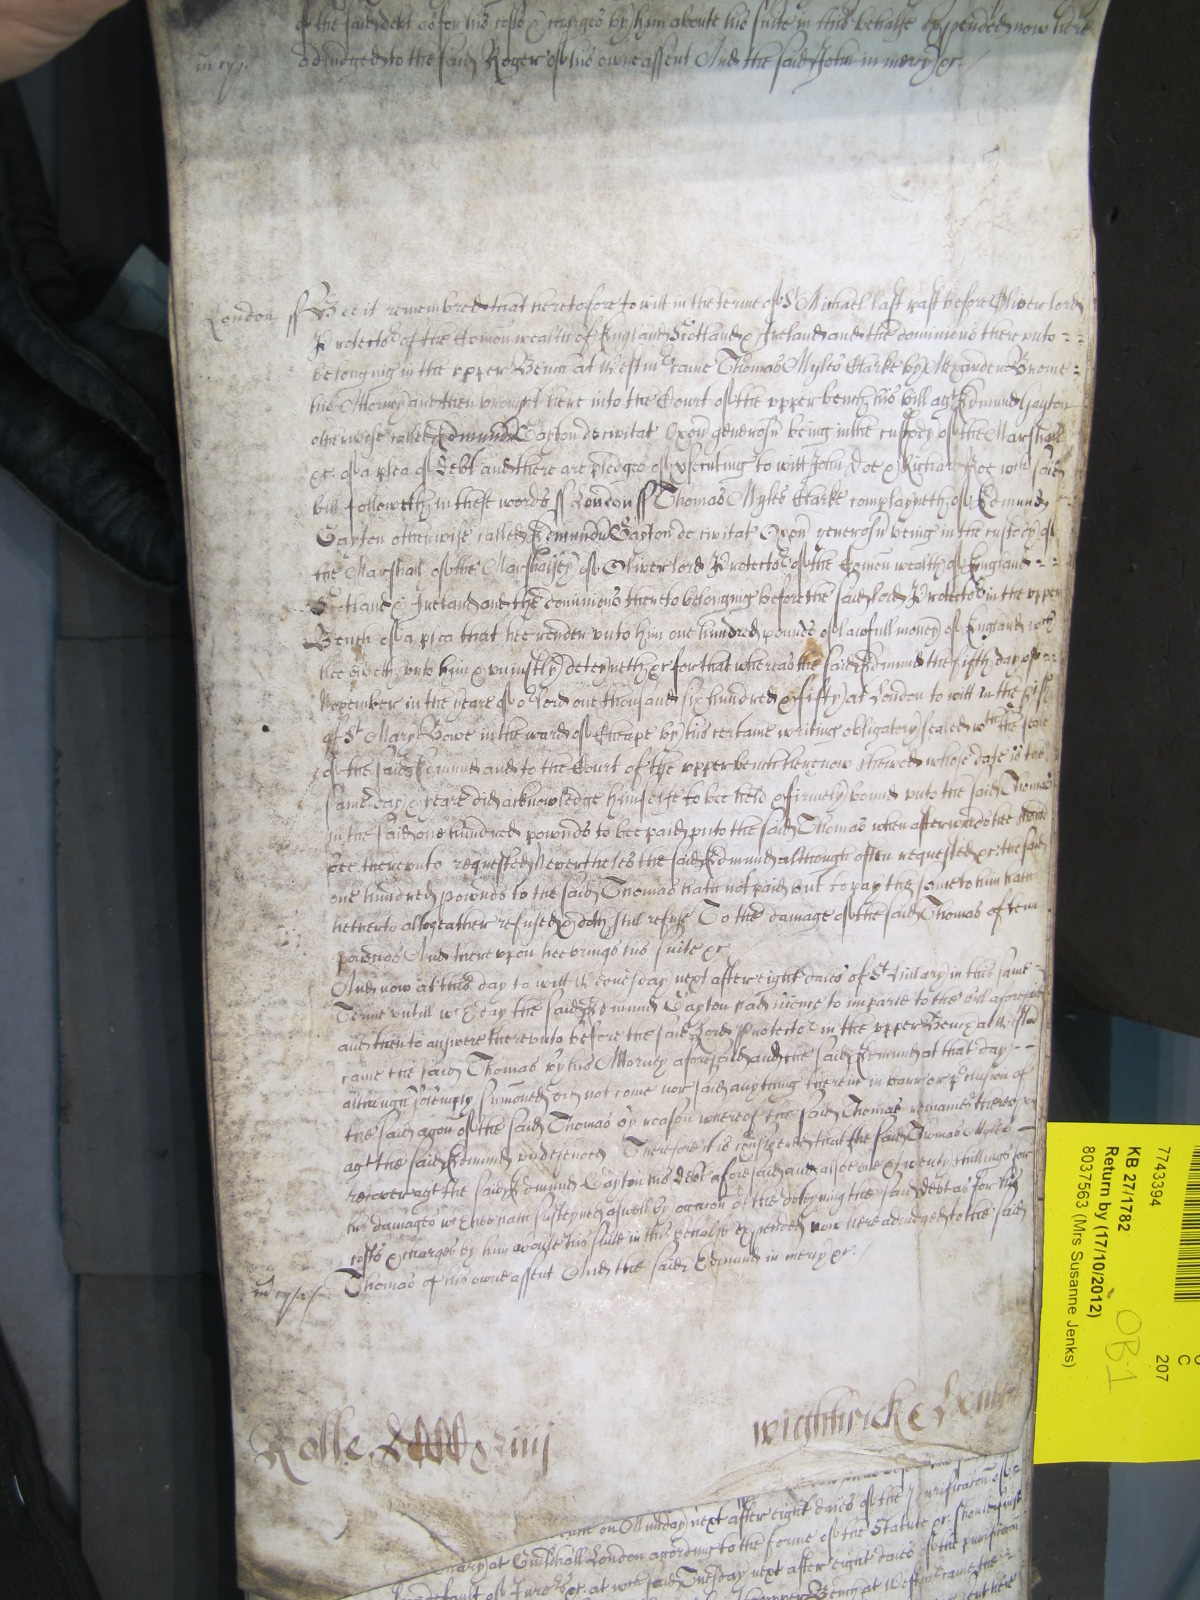 of the said debt as for his costs & charges by him aboute his suite in this behalfe expended now here
adiudged to the said Roger of his owne assent And the said John in mercy &c.
in m̄ij.
London ss Bee it remembred that heretofore to witt in the terme of St Michael last past before Oliver lord
Protector of the Comon wealth of England Scotland & Ireland and the dominions there vnto
belonging in the vpper Bench at Westmr came Thomas Myles Clarke by Alexander Brome
his Attorney and then brought here into the Court of the vpper bench his bill agt Edmund Gayton
otherwise called Edmund Gayton de civitat Oxon generosu being in the custody of the Marshall
&c. of a plea of Debt and there are pledges of prosecuting to witt John Doe & Richard Roe wch said
bill followeth in these words ss London ss Thomas Myles Clarke complayneth of Edmund
Gayton otherwise called Edmund Gayton de civitat Oxon generosu being in the custody of
the Marshall of the Marshalsey of Oliver lord Protector of the Comon wealth of England
Scotland & Ireland and the dominions thereto belonging before the said lord Protector in the vpper
Bench of a plea that hee render vnto him one hundred pounds of lawfull money of England wch
hee oweth vnto him & vniustly deteyneth &c for that whereas the said Edmund the fifth day of
November in the yeare of or Lord one thousand six hundred & fifty at London to witt in the pish
of St Mary Bowe in the ward of Cheape by his certaine writing obligatory sealed wth the seale
of the said Edmund and to the Court of the vpper bench here now shewed whose date is the
same day & yeare did acknowledge himselfe to bee held & firmely bound vnto the said Thomas
in the said one hundred pownds to bee paid vnto the said Thomas when afterwards hee should
bee therevnto requested Neverthelesse the said Edmund although often requested &c the said
one hundred pownds to the said Thomas hath not paid but to pay the same to him hath
hetherto altogeather refused & doth still refuse To the damage of the said Thomas of tenn
pownds And therevpon hee brings his suite &c
And now at this day to witt Wednesday next after eight daies of St Hillary in this same
Terme vntill wch day the said Edmund Gayton had licence to imparle to the bill aforesaid
and then to answere therevnto before the said Lord Protector in the vpper Bench at Westmr
came the said Thomas by his Attorney aforesaid and the said Edmund at that day
although solemply sumoned did not come nor said anything therein in barr or pclusion of
the said acc̄on of the said Thomas by reason whereof the said Thomas remaines therevpon
agt the said Edmund vndefended Therefore it is considered that the said Thomas Myles
recover agt the said Edmund Gayton his debt aforesaid and alsoe one & twenty shillings for
his damages wch hee hath susteyned aswell by occasion of the deteyning the said debt as for his
costs & charges by him aboute his suite in this behalfe expended now here adiudged to the said
Thomas of his owne assent And the said Edmund in mercy &c.
Rolle
wightwick
on Munday next after eight daies of the Purificacon of
at Guildhall London according to the forme of the Statute &c.
at wch said Tuesday next after eight daies of the purificacon
vpper Bench at Westmr came the
7743394
KB 27/1782
Return by (17/10/2012)
8037563 (Mrs Susanne Jenks)
C
207
OB·1